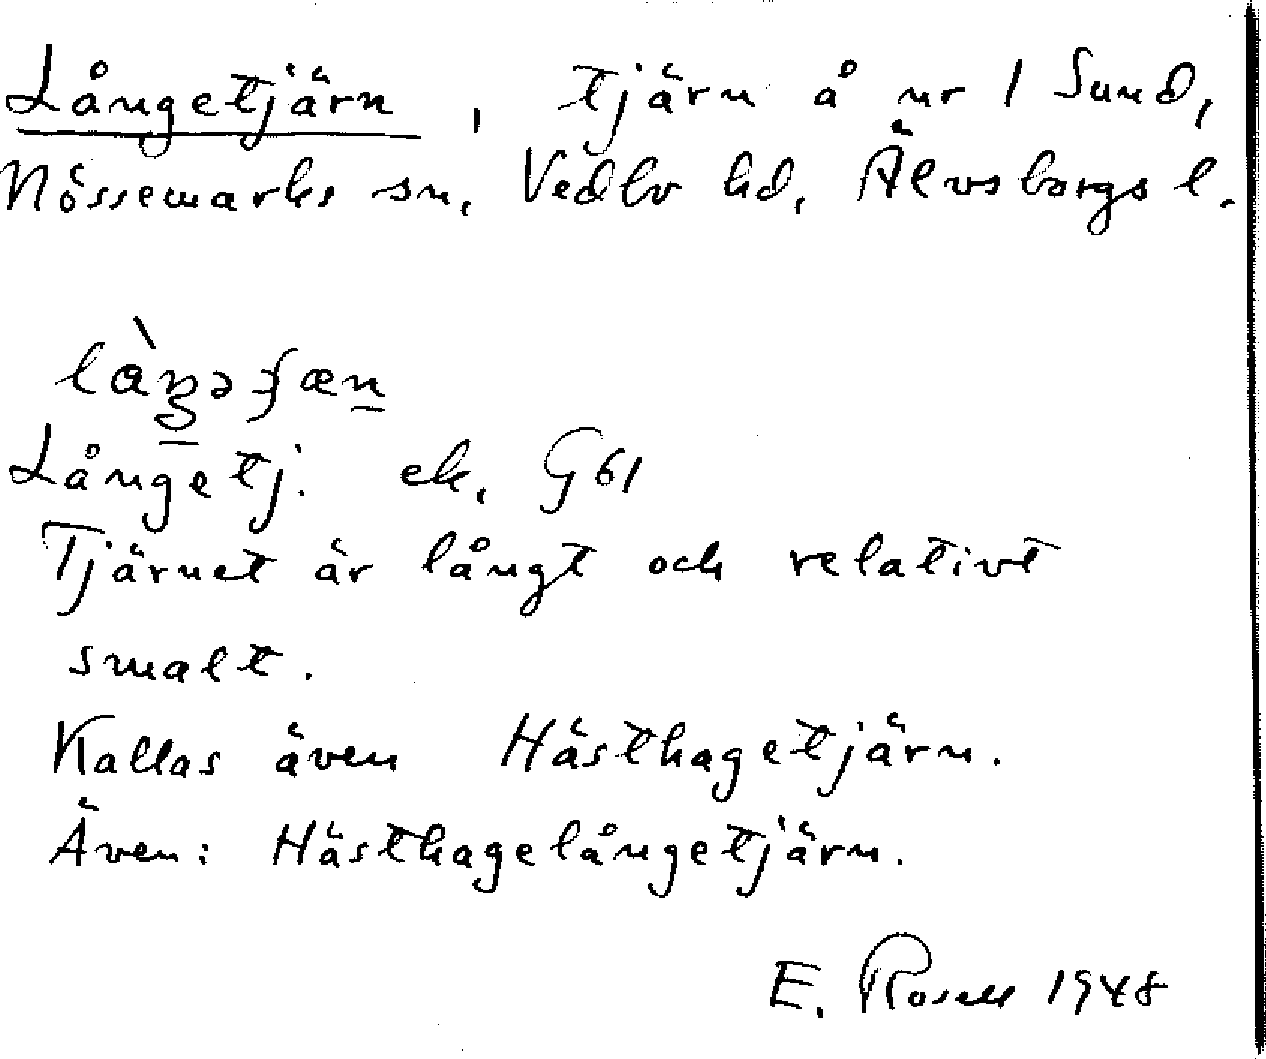 Långetjärn, tjärn å nr 1 Sund,
Nössemarks sn, Vedbo hd, Älvsborgs l.
Långetj. ek, G61
Tjärnet är långt och relativt
smalt.
Kallas även Hästhagetjärn.
Även: Hästhagelångetjärn.
E. Rosell 1948